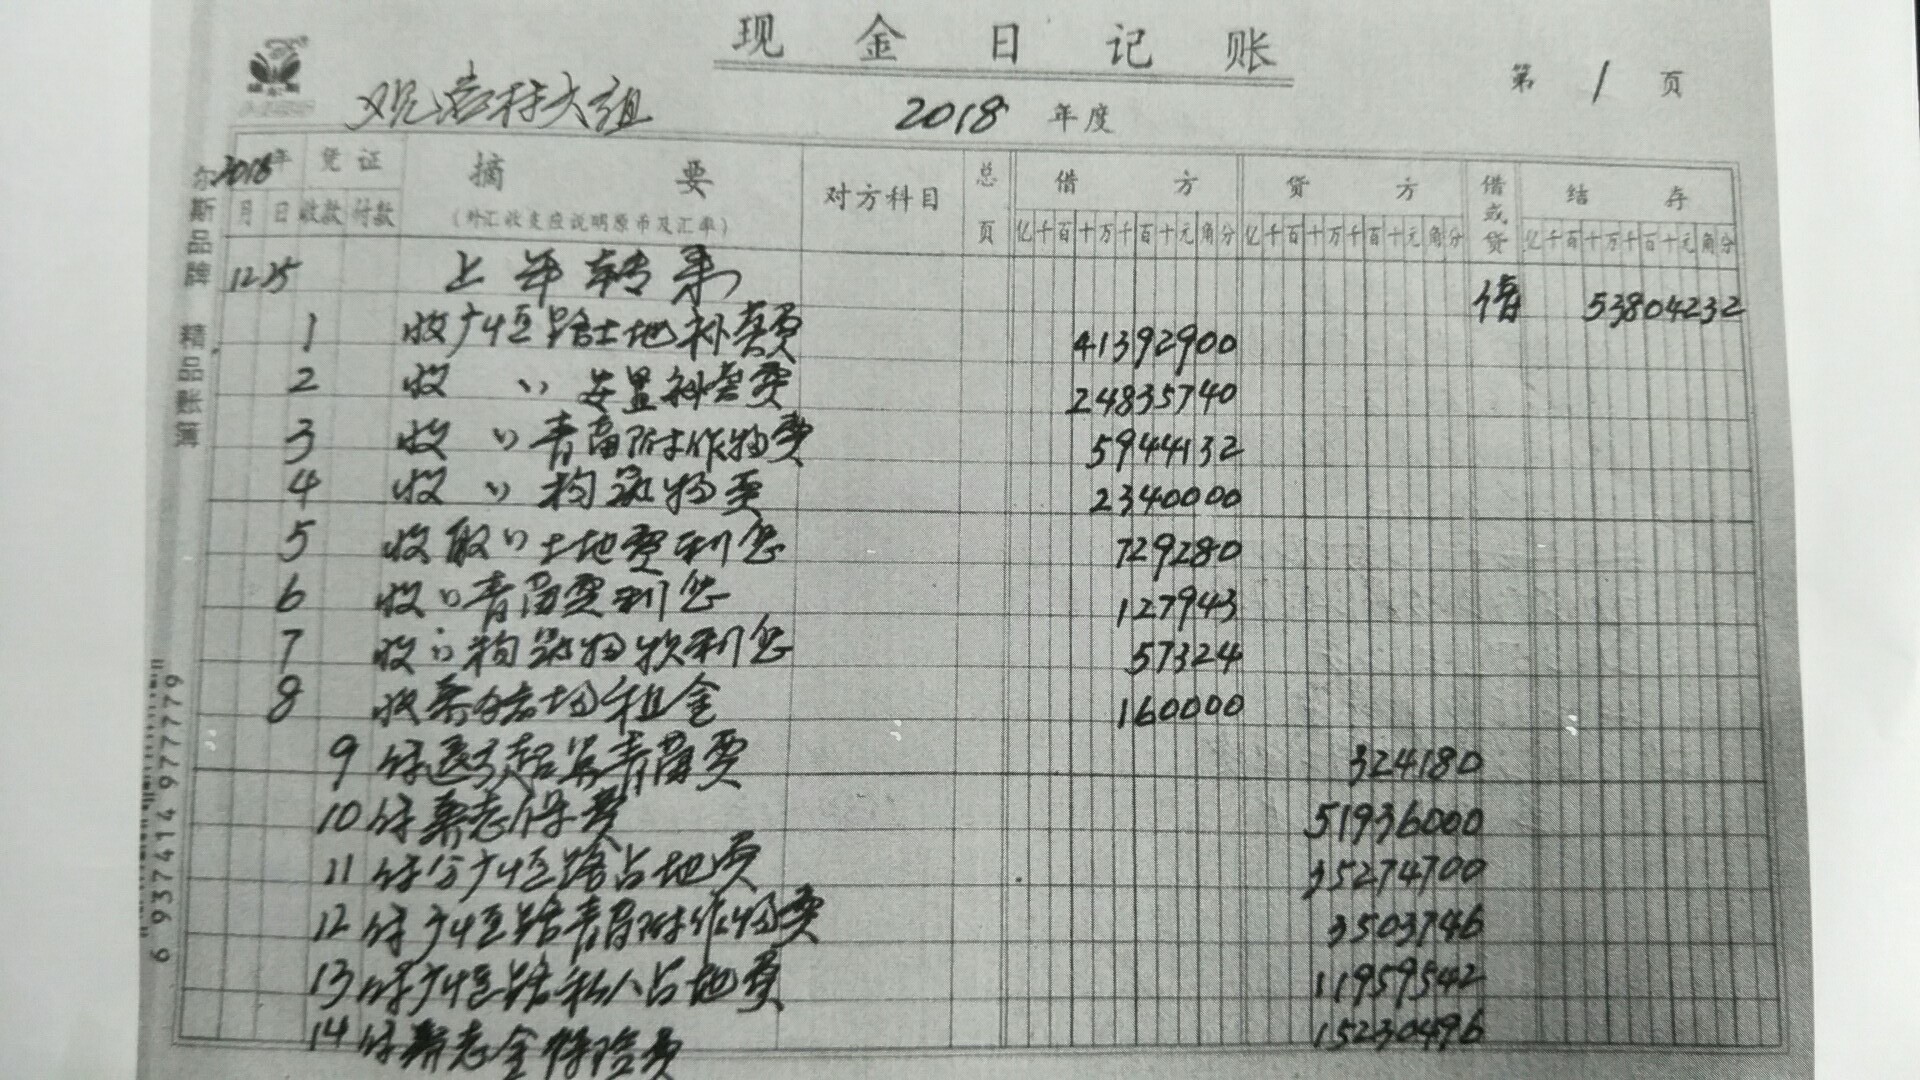 现金日记账
第 1 页
2018 年度
2018年 凭证 摘要 对方科目 总页 借方 贷方 借或贷 结存
月 日 收款 付款 (外汇收支应说明原币及汇率) 亿千百十万千百十元角分 亿千百十万千百十元角分 亿千百十万千百十元角分
12 25 上年转来 借 53804232
1 收广恒路土地补费 41392900
2 收 〃 安置补费 24835740
3 收 〃 青苗附作物费 5944132
4 收 〃 构筑物费 2340000
5 收取〃土地费利息 729280
6 收〃青苗费利息 127943
7 收〃构筑物款利息 57324
8 收 租金 160000
9 付退 青苗费 324180
10 付 费 51936000
11 付分广恒路占地费 35274700
12 付广恒路青苗附作物费 3503746
13 付广恒路私人占地费 11959542
14 付 保险费 15230496
尔斯品牌 精品账簿
6 937414 977779